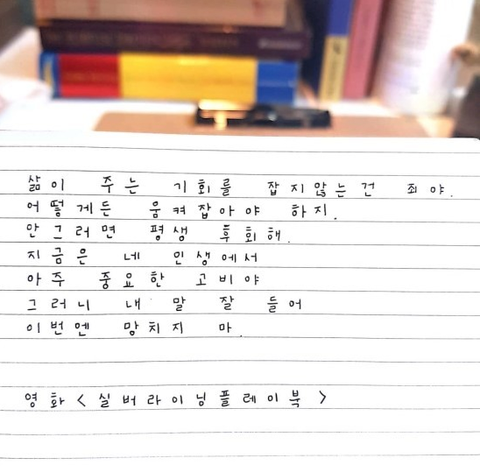 삶이 주는 기회를 잡지않는건 죄야.
어떻게든 움켜잡아야 하지.
안그러면 평생 후회해.
지금은 네 인생에서
아주 중요한 고비야
그러니 내 말 잘 들어
이번엔 망치지 마.
영화 <실버라이닝플레이북>